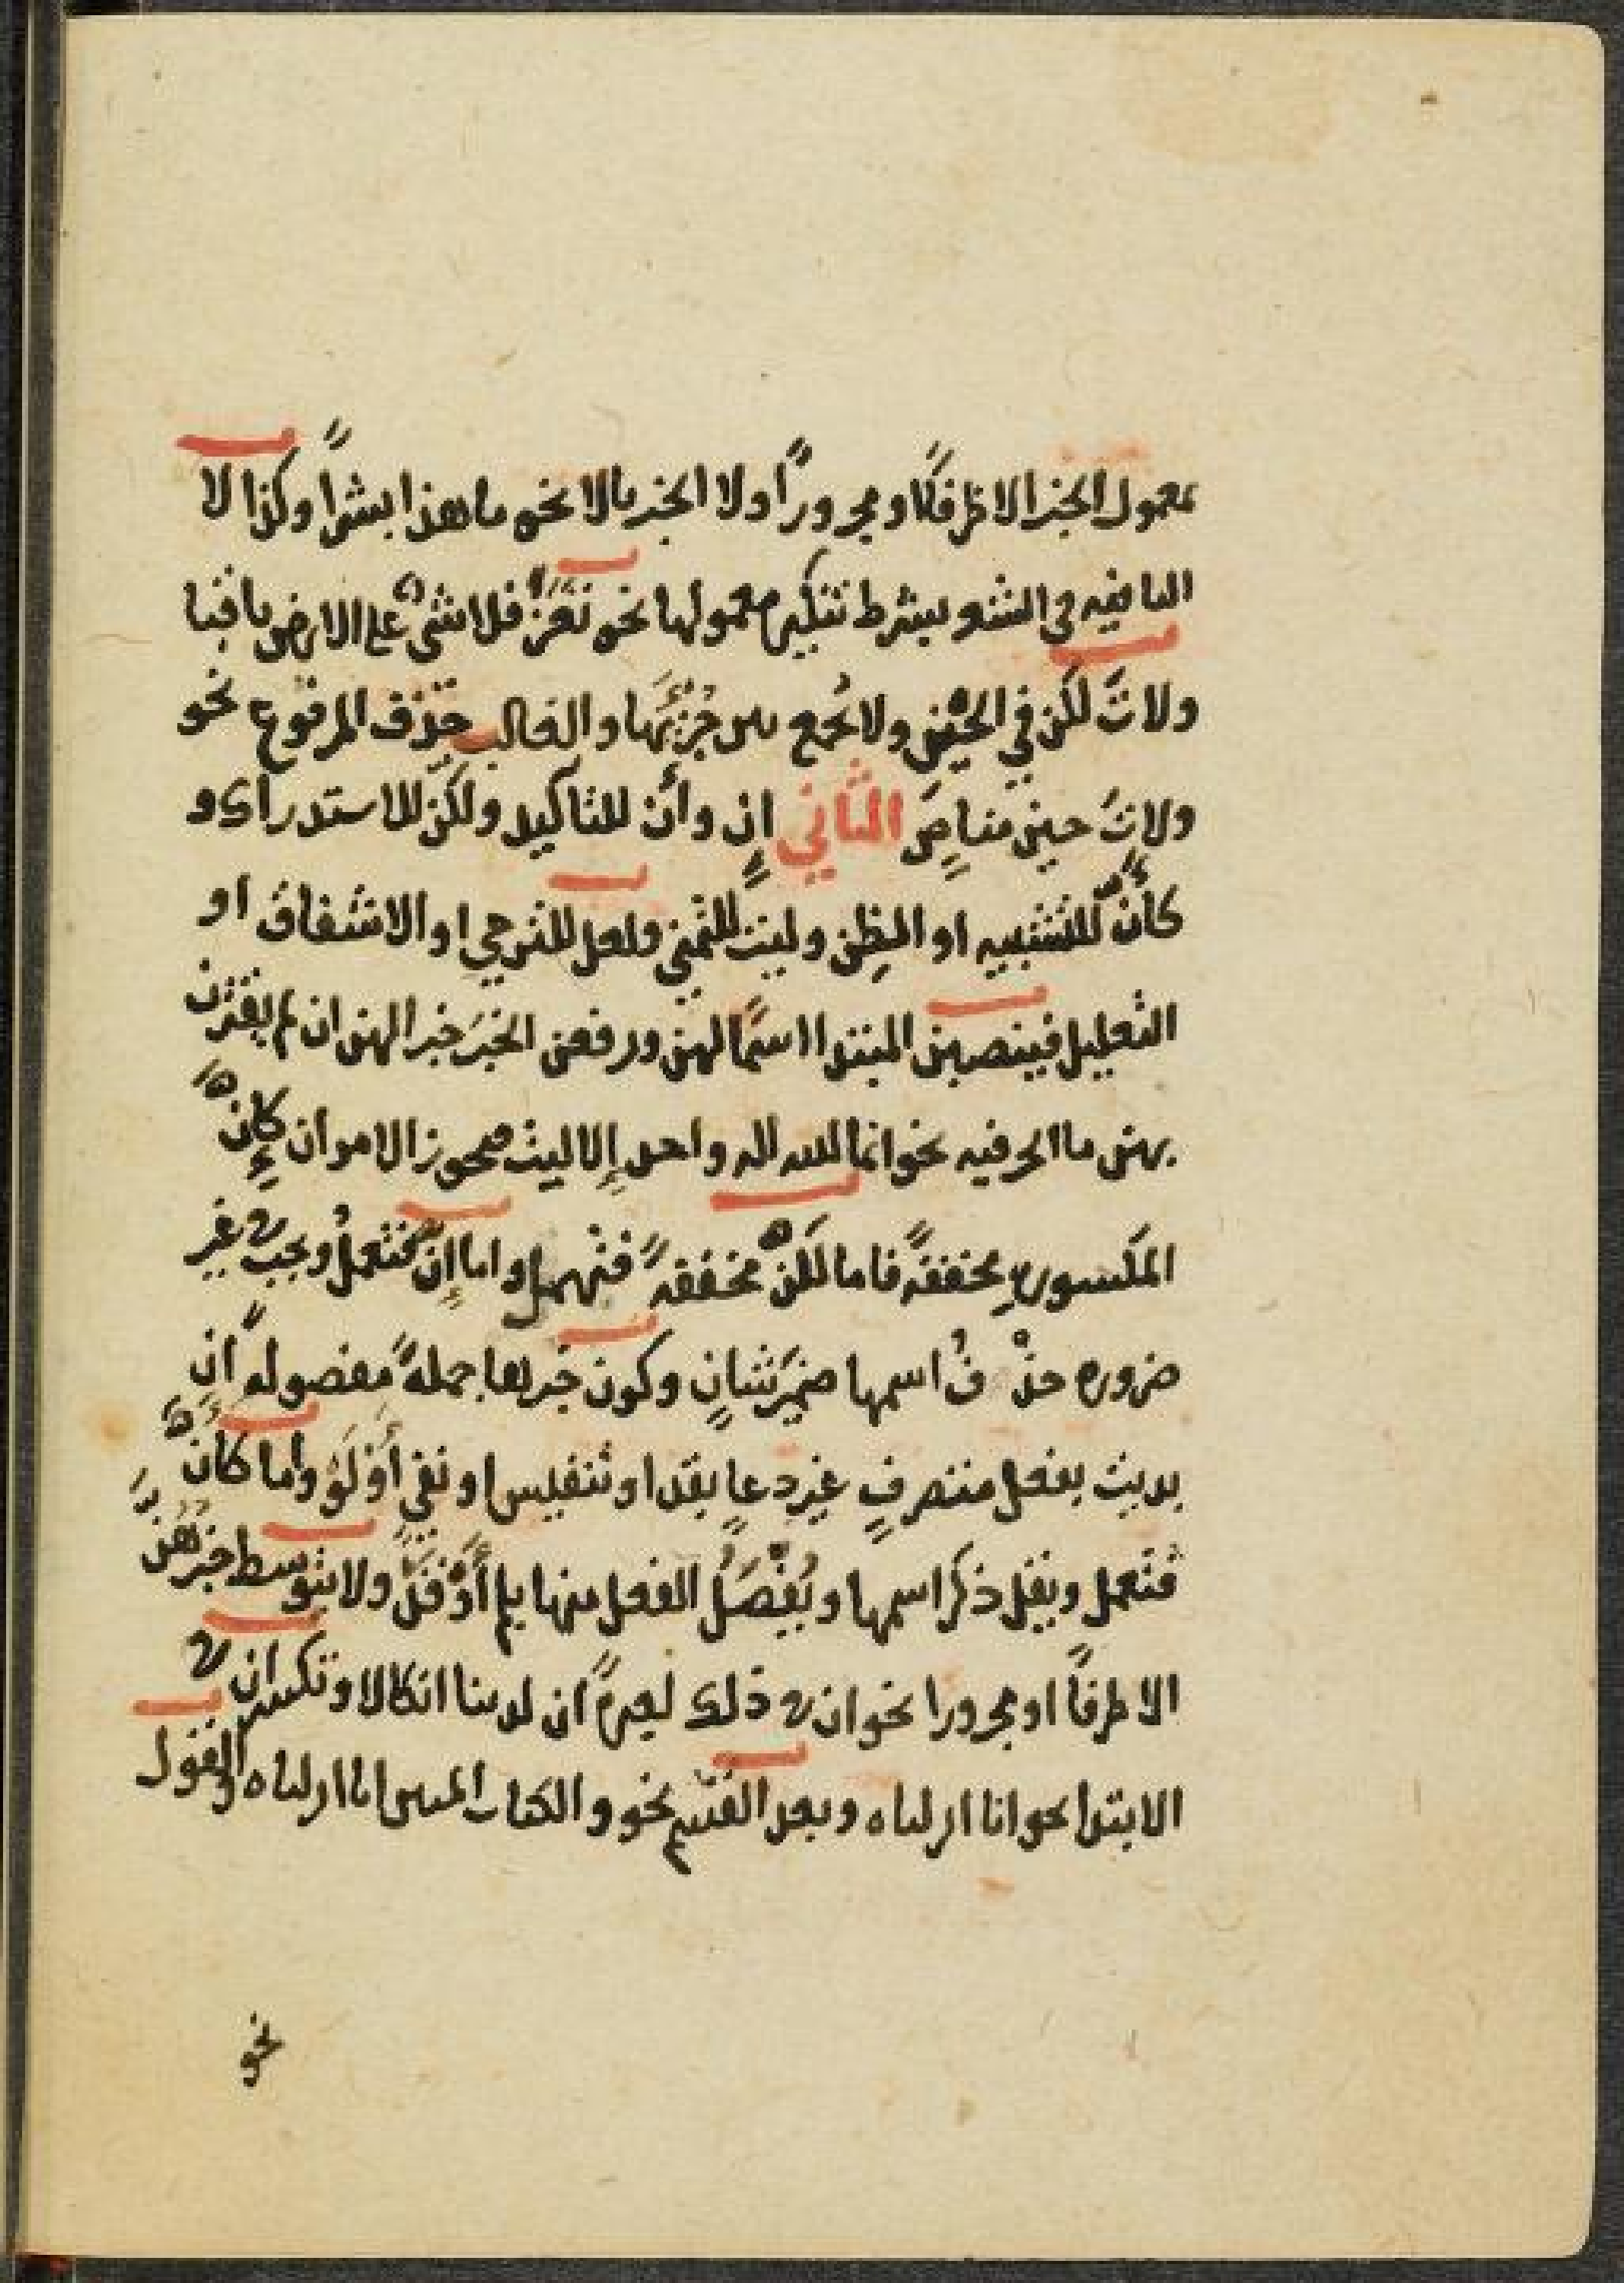 معمول الخبر الا ظرفًا او مجرورًا ولا الخبر بالا نحو ما هذا بشرًا وكذا لا
النافيه في الشعر بشرط تنكير معموليها نحو تَعَزَّ فلا شئ على الارض باقيا
ولاتَ لكن في الحين ولا يُجمع بين جُزئَيْها والغالب حذف المرفوع نحو
ولاتَ حينَ مناصٍ الثاني إنّ وأنّ للتاكيد ولكنّ للاستدراك و
كأنّ للتشبيه او الظن وليت للتمني ولعل للترجي او الاشفاق او
التعليل فينصبن المبتدا اسمًا لهن ويرفعن الخبَر خبرا لهن ان لم يقترن
بهن ما الحرفيه نحو انما الله اله واحد إلا ليت فيجوز الامران كإنْ
المكسورهِ مخففةً فاما لكنْ مخففهً فتهمل واما أنْ فتعملُ ويجب في غير
ضروره حذْفُ اسمها ضميَر شانٍ وكون خبرها جملهً مفصولهً ان
بديت بفعل متصرفٍ غير دعاٍ بقد او تنفيس او نفي أوْ لَوْ واما كأنْ
فتعمل ويقل ذكر اسمها ويُفْصَلُ الفعل منها بلم أوْ قَدْ ولا يتوسط خبرُهُنّ
الا ظرفاً او مجرورا نحو ان في ذلك لعبرةً ان لدينا انكالا وتكسر ان في
الابتدا نحو انا انزلناه وبعد القسم نحو والكتاب المبين انا انزلناه والقول
نحو